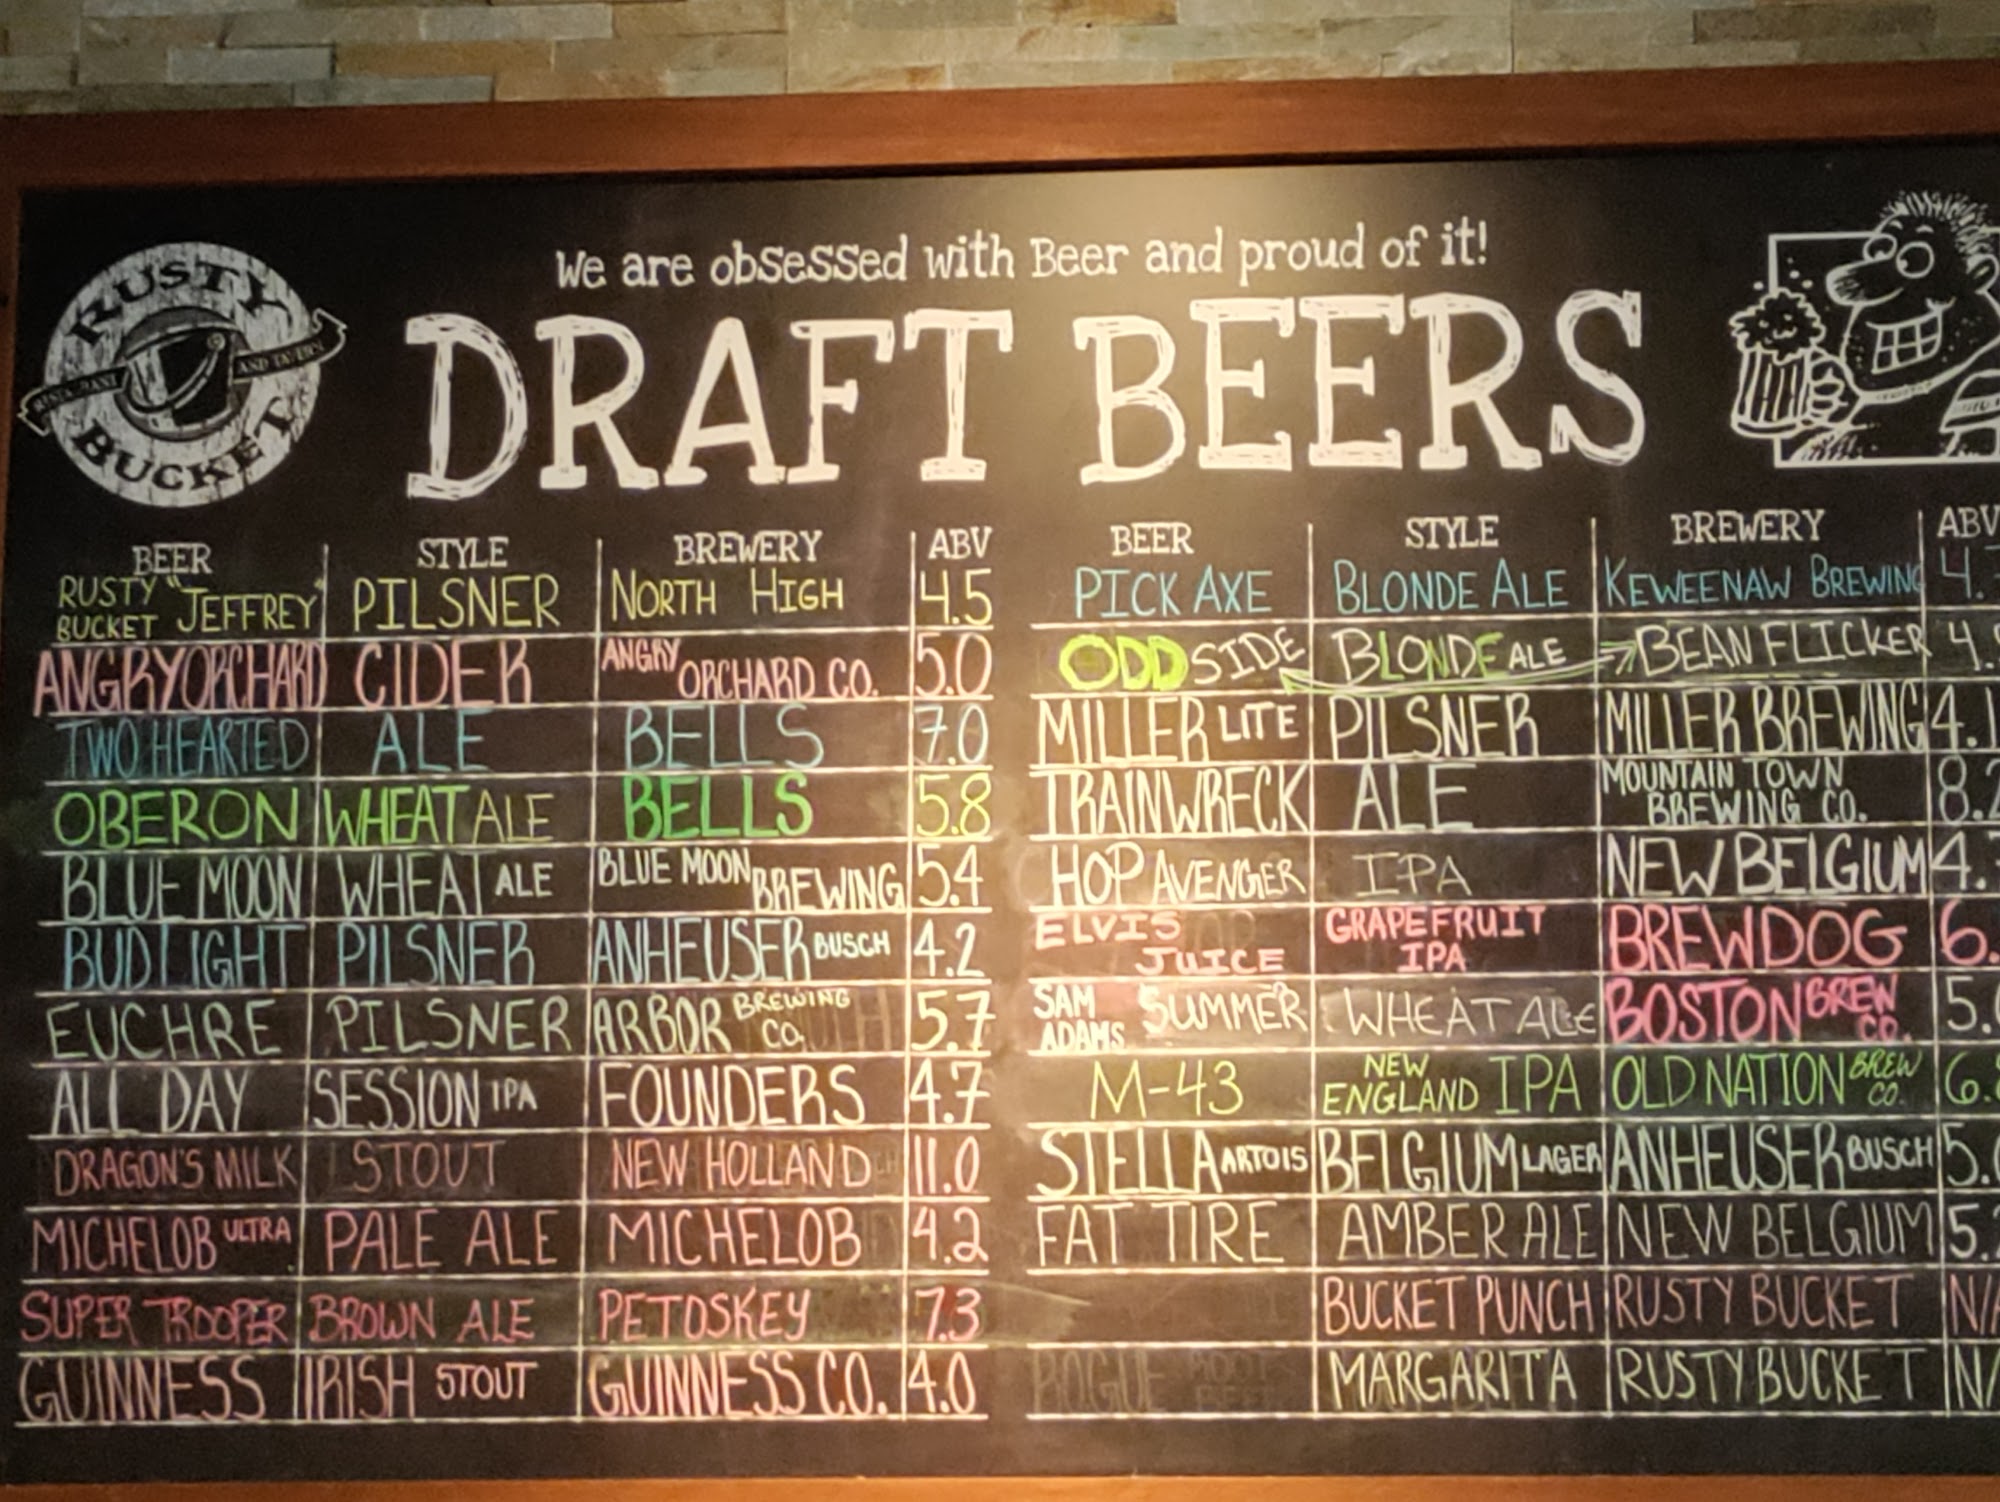 RUSTY
RESTAURANT AND TAVERN
BUCKET
We are obsessed with Beer and proud of it!
DRAFT BEERS
BEER STYLE BREWERY ABV
RUSTY BUCKET "JEFFREY" PILSNER NORTH HIGH 4.5
ANGRY ORCHARD CIDER ANGRY ORCHARD CO. 5.0
TWO HEARTED ALE BELLS 7.0
OBERON WHEAT ALE BELLS 5.8
BLUE MOON WHEAT ALE BLUE MOON BREWING 5.4
BUD LIGHT PILSNER ANHEUSER BUSCH 4.2
EUCHRE PILSNER ARBOR BREWING CO. 5.7
ALL DAY SESSION IPA FOUNDERS 4.7
DRAGON'S MILK STOUT NEW HOLLAND 11.0
MICHELOB ULTRA PALE ALE MICHELOB 4.2
SUPER TROOPER BROWN ALE PETOSKEY 7.3
GUINNESS IRISH STOUT GUINNESS CO. 4.0
BEER STYLE BREWERY ABV
PICK AXE BLONDE ALE KEWEENAW BREWING 4.
ODD SIDE BLONDE ALE BEAN FLICKER 4.
MILLER LITE PILSNER MILLER BREWING 4.1
TRAINWRECK ALE MOUNTAIN TOWN BREWING CO. 8.2
HOP AVENGER IPA NEW BELGIUM 4.
ELVIS JUICE GRAPEFRUIT IPA BREWDOG 6.
SAM ADAMS SUMMER WHEAT ALE BOSTON BREW CO. 5.
M-43 NEW ENGLAND IPA OLD NATION BREW CO. 6.
STELLA ARTOIS BELGIUM LAGER ANHEUSER BUSCH 5.
FAT TIRE AMBER ALE NEW BELGIUM 5.2
BUCKET PUNCH RUSTY BUCKET N/
ROGUE ROOT BEER MARGARITA RUSTY BUCKET N/